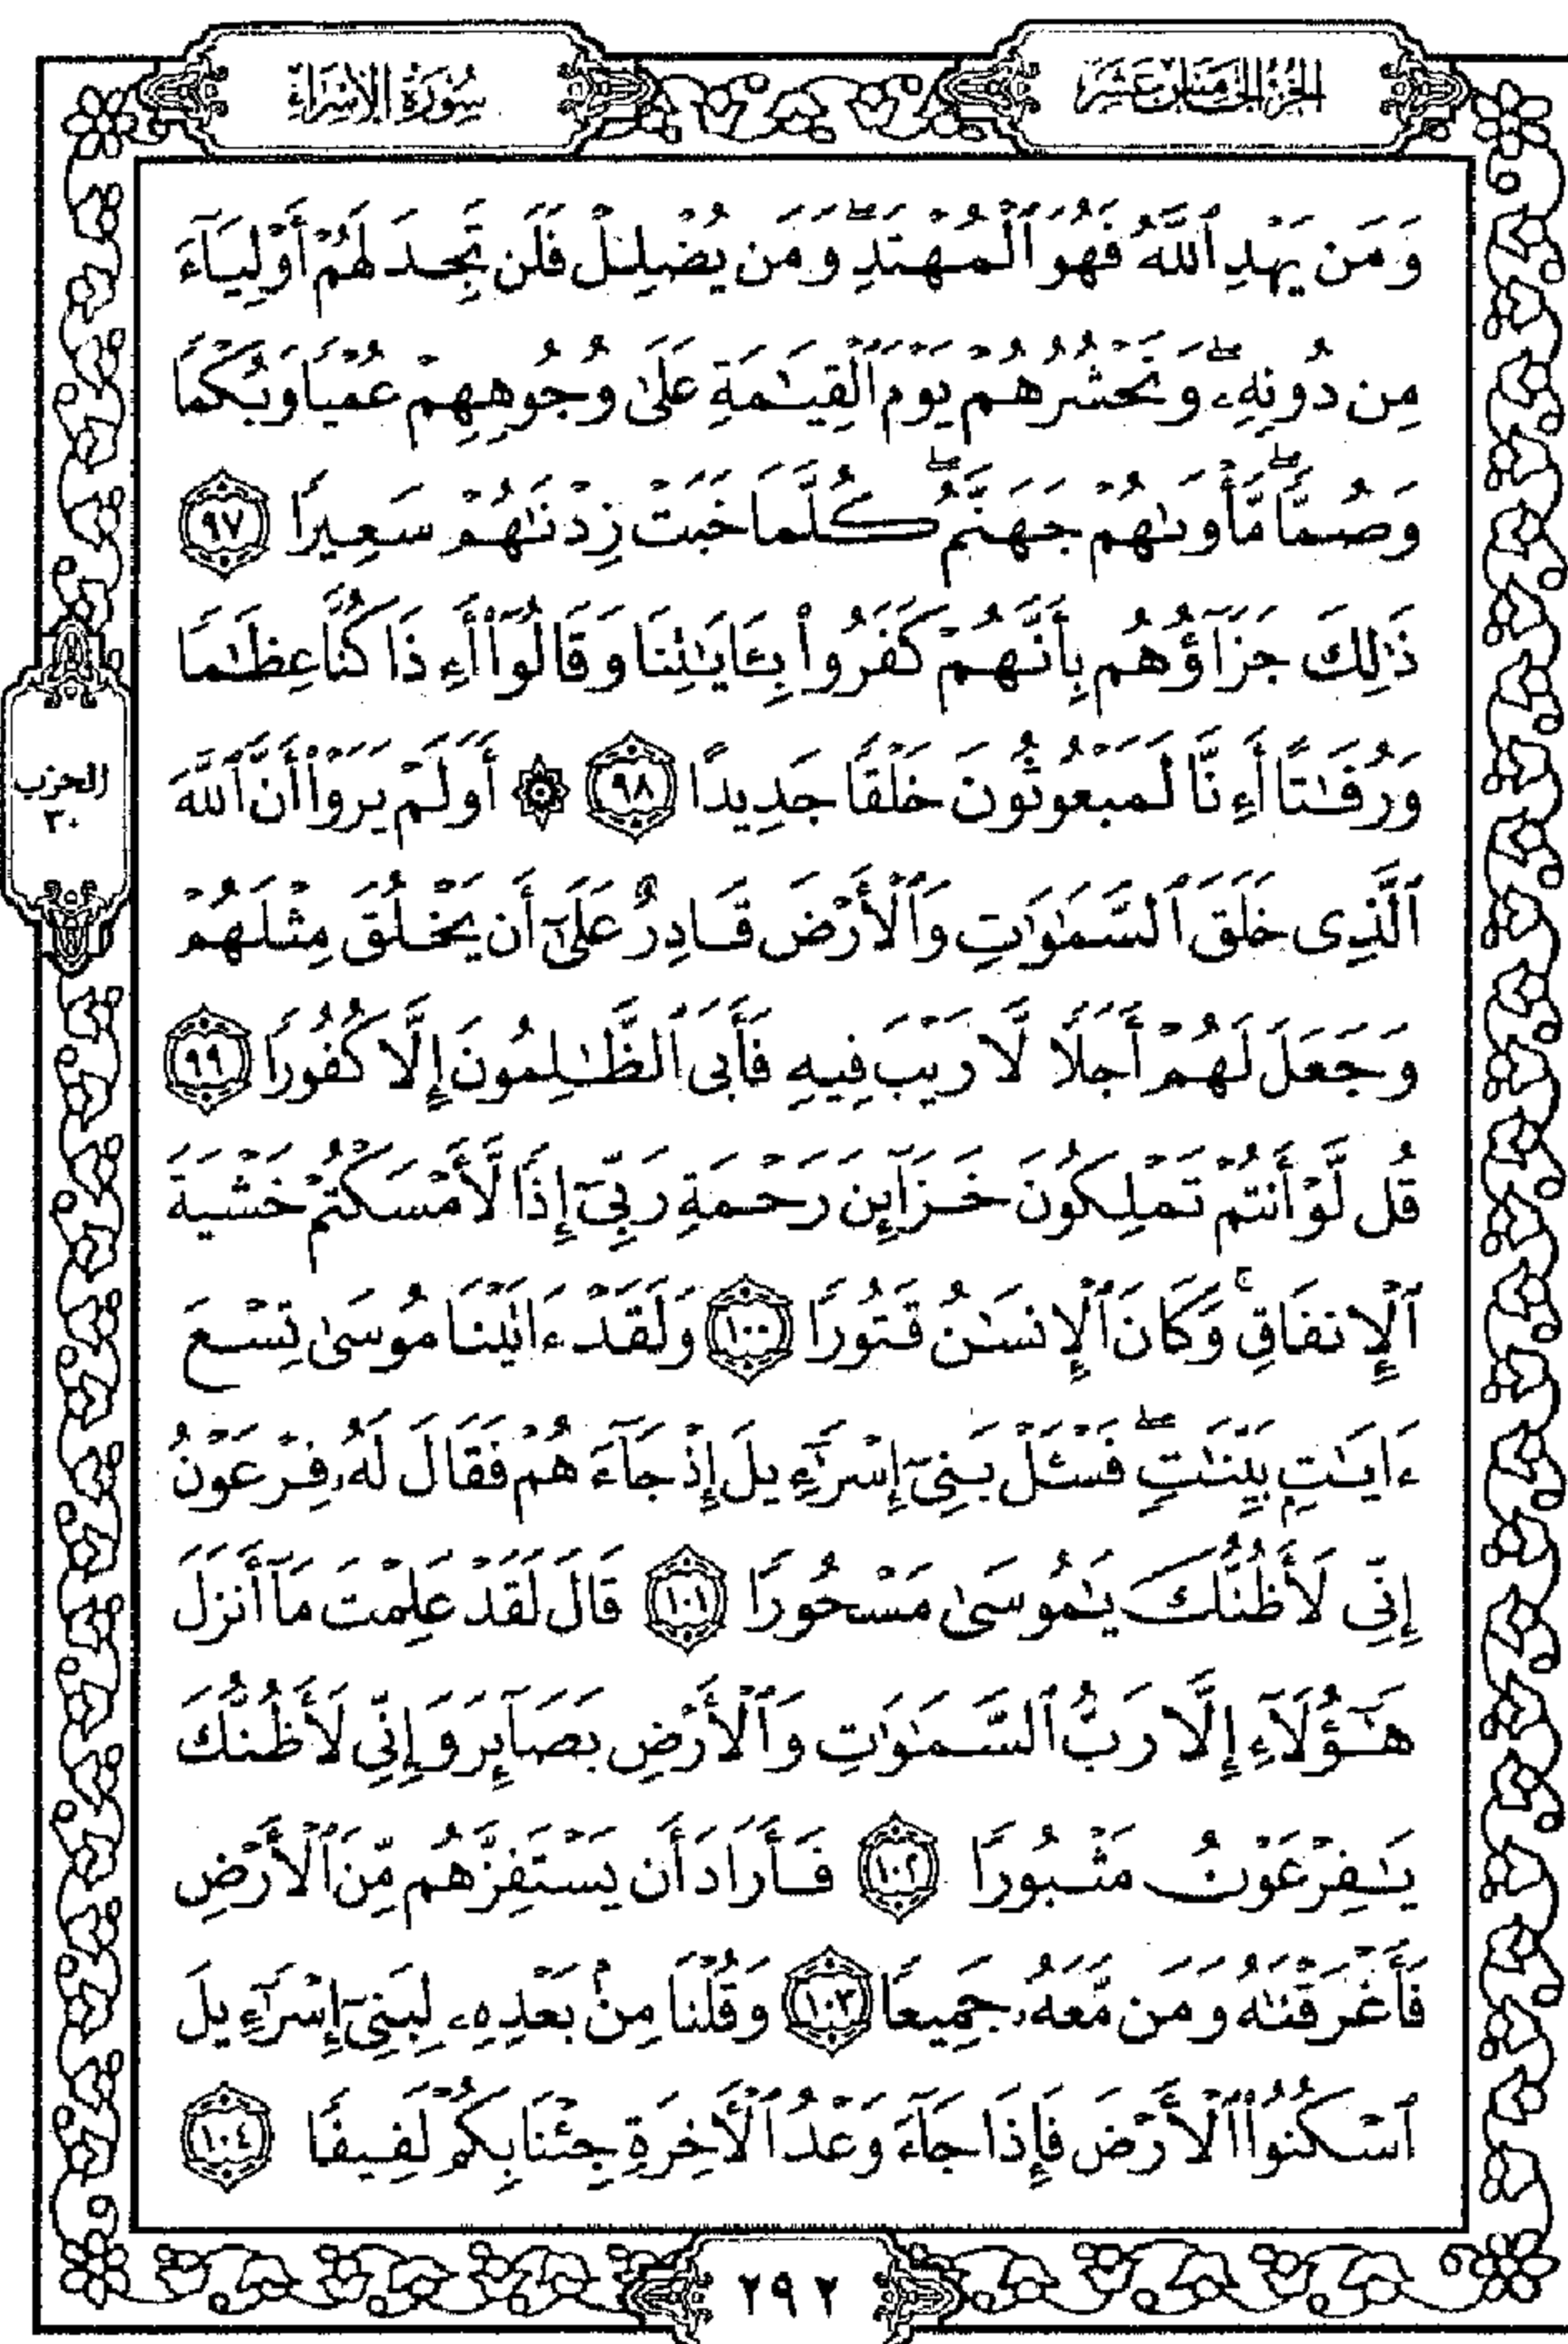 الجزء الخامس عشر
سورة الإسراء
وَمَن يَهْدِ ٱللَّهُ فَهُوَ ٱلْمُهْتَدِ ۖ وَمَن يُضْلِلْ فَلَن تَجِدَ لَهُمْ أَوْلِيَآءَ
مِن دُونِهِۦ ۖ وَنَحْشُرُهُمْ يَوْمَ ٱلْقِيَٰمَةِ عَلَىٰ وُجُوهِهِمْ عُمْيًا وَبُكْمًا
وَصُمًّا ۖ مَّأْوَىٰهُمْ جَهَنَّمُ ۖ كُلَّمَا خَبَتْ زِدْنَٰهُمْ سَعِيرًا ٩٧
ذَٰلِكَ جَزَآؤُهُم بِأَنَّهُمْ كَفَرُوا۟ بِـَٔايَٰتِنَا وَقَالُوٓا۟ أَءِذَا كُنَّا عِظَٰمًا
وَرُفَٰتًا أَءِنَّا لَمَبْعُوثُونَ خَلْقًا جَدِيدًا ٩٨ ۞ أَوَلَمْ يَرَوْا۟ أَنَّ ٱللَّهَ
الحزب
٣٠
ٱلَّذِى خَلَقَ ٱلسَّمَٰوَٰتِ وَٱلْأَرْضَ قَادِرٌ عَلَىٰٓ أَن يَخْلُقَ مِثْلَهُمْ
وَجَعَلَ لَهُمْ أَجَلًا لَّا رَيْبَ فِيهِ فَأَبَى ٱلظَّٰلِمُونَ إِلَّا كُفُورًا ٩٩
قُل لَّوْ أَنتُمْ تَمْلِكُونَ خَزَآئِنَ رَحْمَةِ رَبِّىٓ إِذًا لَّأَمْسَكْتُمْ خَشْيَةَ
ٱلْإِنفَاقِ ۚ وَكَانَ ٱلْإِنسَٰنُ قَتُورًا ١٠٠ وَلَقَدْ ءَاتَيْنَا مُوسَىٰ تِسْعَ
ءَايَٰتٍۭ بَيِّنَٰتٍ ۖ فَسْـَٔلْ بَنِىٓ إِسْرَٰٓءِيلَ إِذْ جَآءَهُمْ فَقَالَ لَهُۥ فِرْعَوْنُ
إِنِّى لَأَظُنُّكَ يَٰمُوسَىٰ مَسْحُورًا ١٠١ قَالَ لَقَدْ عَلِمْتَ مَآ أَنزَلَ
هَٰٓؤُلَآءِ إِلَّا رَبُّ ٱلسَّمَٰوَٰتِ وَٱلْأَرْضِ بَصَآئِرَ وَإِنِّى لَأَظُنُّكَ
يَٰفِرْعَوْنُ مَثْبُورًا ١٠٢ فَأَرَادَ أَن يَسْتَفِزَّهُم مِّنَ ٱلْأَرْضِ
فَأَغْرَقْنَٰهُ وَمَن مَّعَهُۥ جَمِيعًا ١٠٣ وَقُلْنَا مِنۢ بَعْدِهِۦ لِبَنِىٓ إِسْرَٰٓءِيلَ
ٱسْكُنُوا۟ ٱلْأَرْضَ فَإِذَا جَآءَ وَعْدُ ٱلْءَاخِرَةِ جِئْنَا بِكُمْ لَفِيفًا ١٠٤
٢٩٢